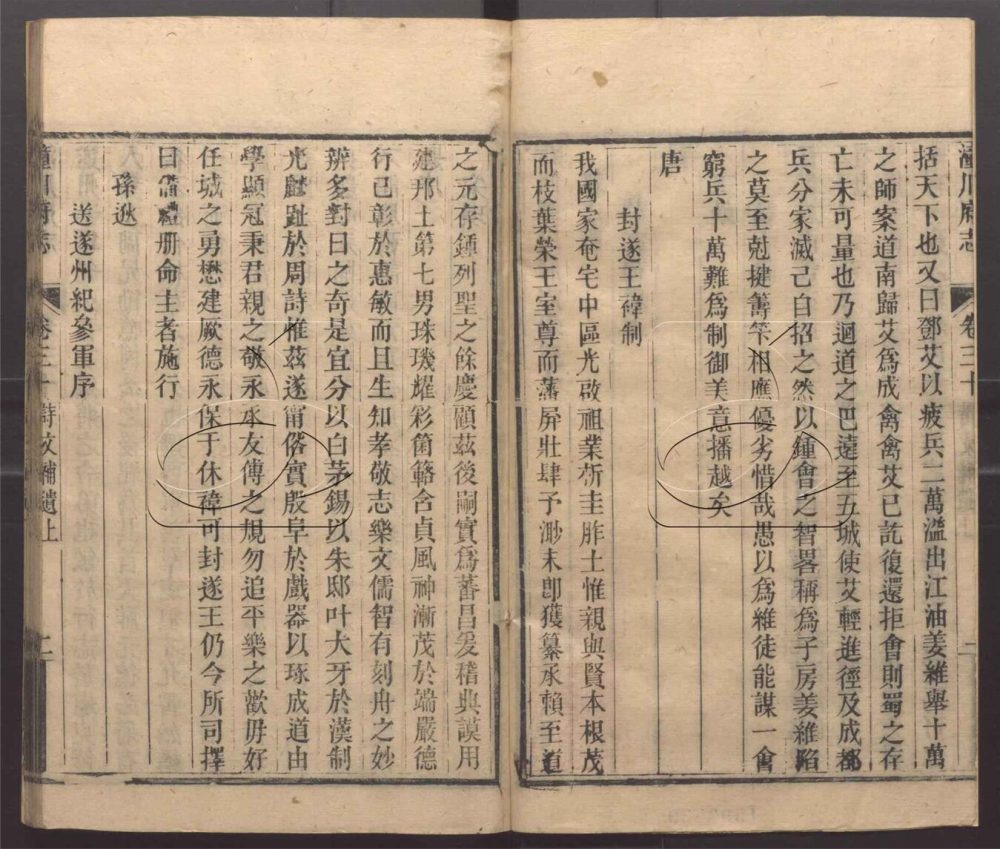 潼川府志 卷三十 二
括天下也又曰鄧艾以疲兵二萬溢出江油姜維舉十萬
之師案道南歸艾為成禽禽艾已訖復還拒會則蜀之存
亡未可量也乃迴道之巴遠至五城使艾輕進徑及成都
兵分家滅己自招之然以鍾會之智畧稱為子房姜維陷
之莫至尅揵籌筭相應優劣惜哉愚以為維徒能謀一會
窮兵十萬難為制御美意播越矣
唐
封遂王褘制
我國家奄宅中區光啟祖業斫圭胙土惟親與賢本根茂
而枝葉榮王室尊而藩屏壯肆予渺末卽獲纂承賴至道
之元存鍾列聖之餘慶顧茲後嗣實為蕃昌爰稽典謨用
建邦土第七男珠璣耀彩箘簵含貞風神漸茂於端嚴德
行己彰於惠敏而且生知孝敬志樂文儒智有刻舟之妙
辨多對日之奇是宜分以白茅錫以朱邸叶大牙於漢制
光麟趾於周詩惟茲遂甯俗實殷阜於戲器以琢成道由
學顯冠秉君親之敬永承友傅之規勿追平樂之歡毋好
任城之勇懋建厥德永保于休褘可封遂王仍今所司擇
日備禮册命主者施行
孫逖
送遂州紀參軍序
潼川府志 卷三十 詩文補遺上 二